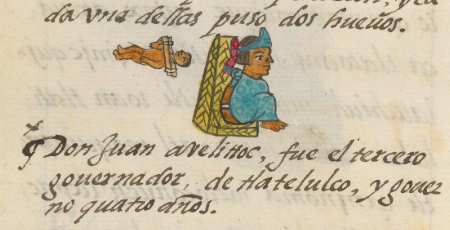 da vna destas puso dos hueuos.
¶ Don Juan avelittoc, fue el tercero
gouernador, de tlatelulco, y gouer
no quatro años.